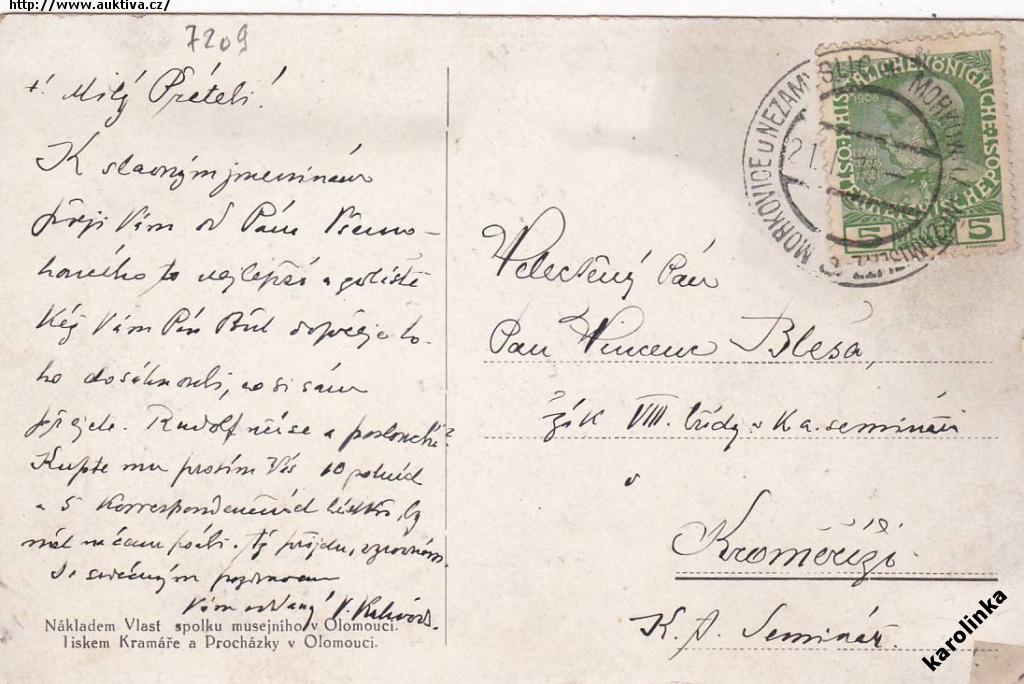 http://www.auktiva.cz/
7209
+! Milý Příteli!
K slavným jmeninám
přeji Vám od Pána Všemo-
houcího to nejlepší a
Kéž Vám Pán Bůh dopřeje to-
ho dosáhnouti, co si sám
přejete. Rudolf učí se a poslouchá?
Kupte mu prosím Vás 10
a 5 korrespondenčních lístků, by
měl na čem psáti. Až přijdu, vyrovnám.
Se srdečným pozdravem
Vám oddaný V.
Nákladem Vlast spolku musejního v Olomouci.
Tiskem Kramáře a Procházky v Olomouci.
MORKOVICE U NEZAMYSLIC
MORKOWITZ
5 5
1908
Velectěný Pán
Pan Vincenc Blesa,
žák VIII. třídy v K a. semináři
v
Kroměříži.
K. A. Seminář.
karolinka